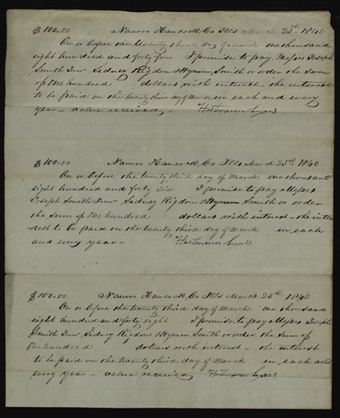 $100.00 Nauvoo Hancock Co Ills March 23d 1840
On or before the twenty third day of March one thousand
eight hundred and forty five I promise to pay Messrs Joseph
Smith Junr Sidney Rigdon Hyrum Smith or order the sum
of One hundred dollars with interest - the interest
to be paid on the twenty third day of March in each and every
year - value received
$100.00 Nauvoo Hancock Co Ills March 23d 1840
On or before the twenty third day of March one thousand
eight hundred and forty six I promise to pay Messrs
Joseph Smith Junr Sidney Rigdon Hyrum Smith or order
the sum of One hundred dollars with interest - the inte
rest to be paid on the twenty third day of March in each
and every year -
$100.00 Nauvoo Hancock Co Ills March 23d 1840
On or before the twenty third day of March one thousand
eight hundred and forty eight I promise to pay Messrs Joseph
Smith Junr Sidney Rigdon Hyrum Smith or order the sum of
One hundred dollars with interest - the interest
to be paid on the twenty third day of March in each and
every year - value received